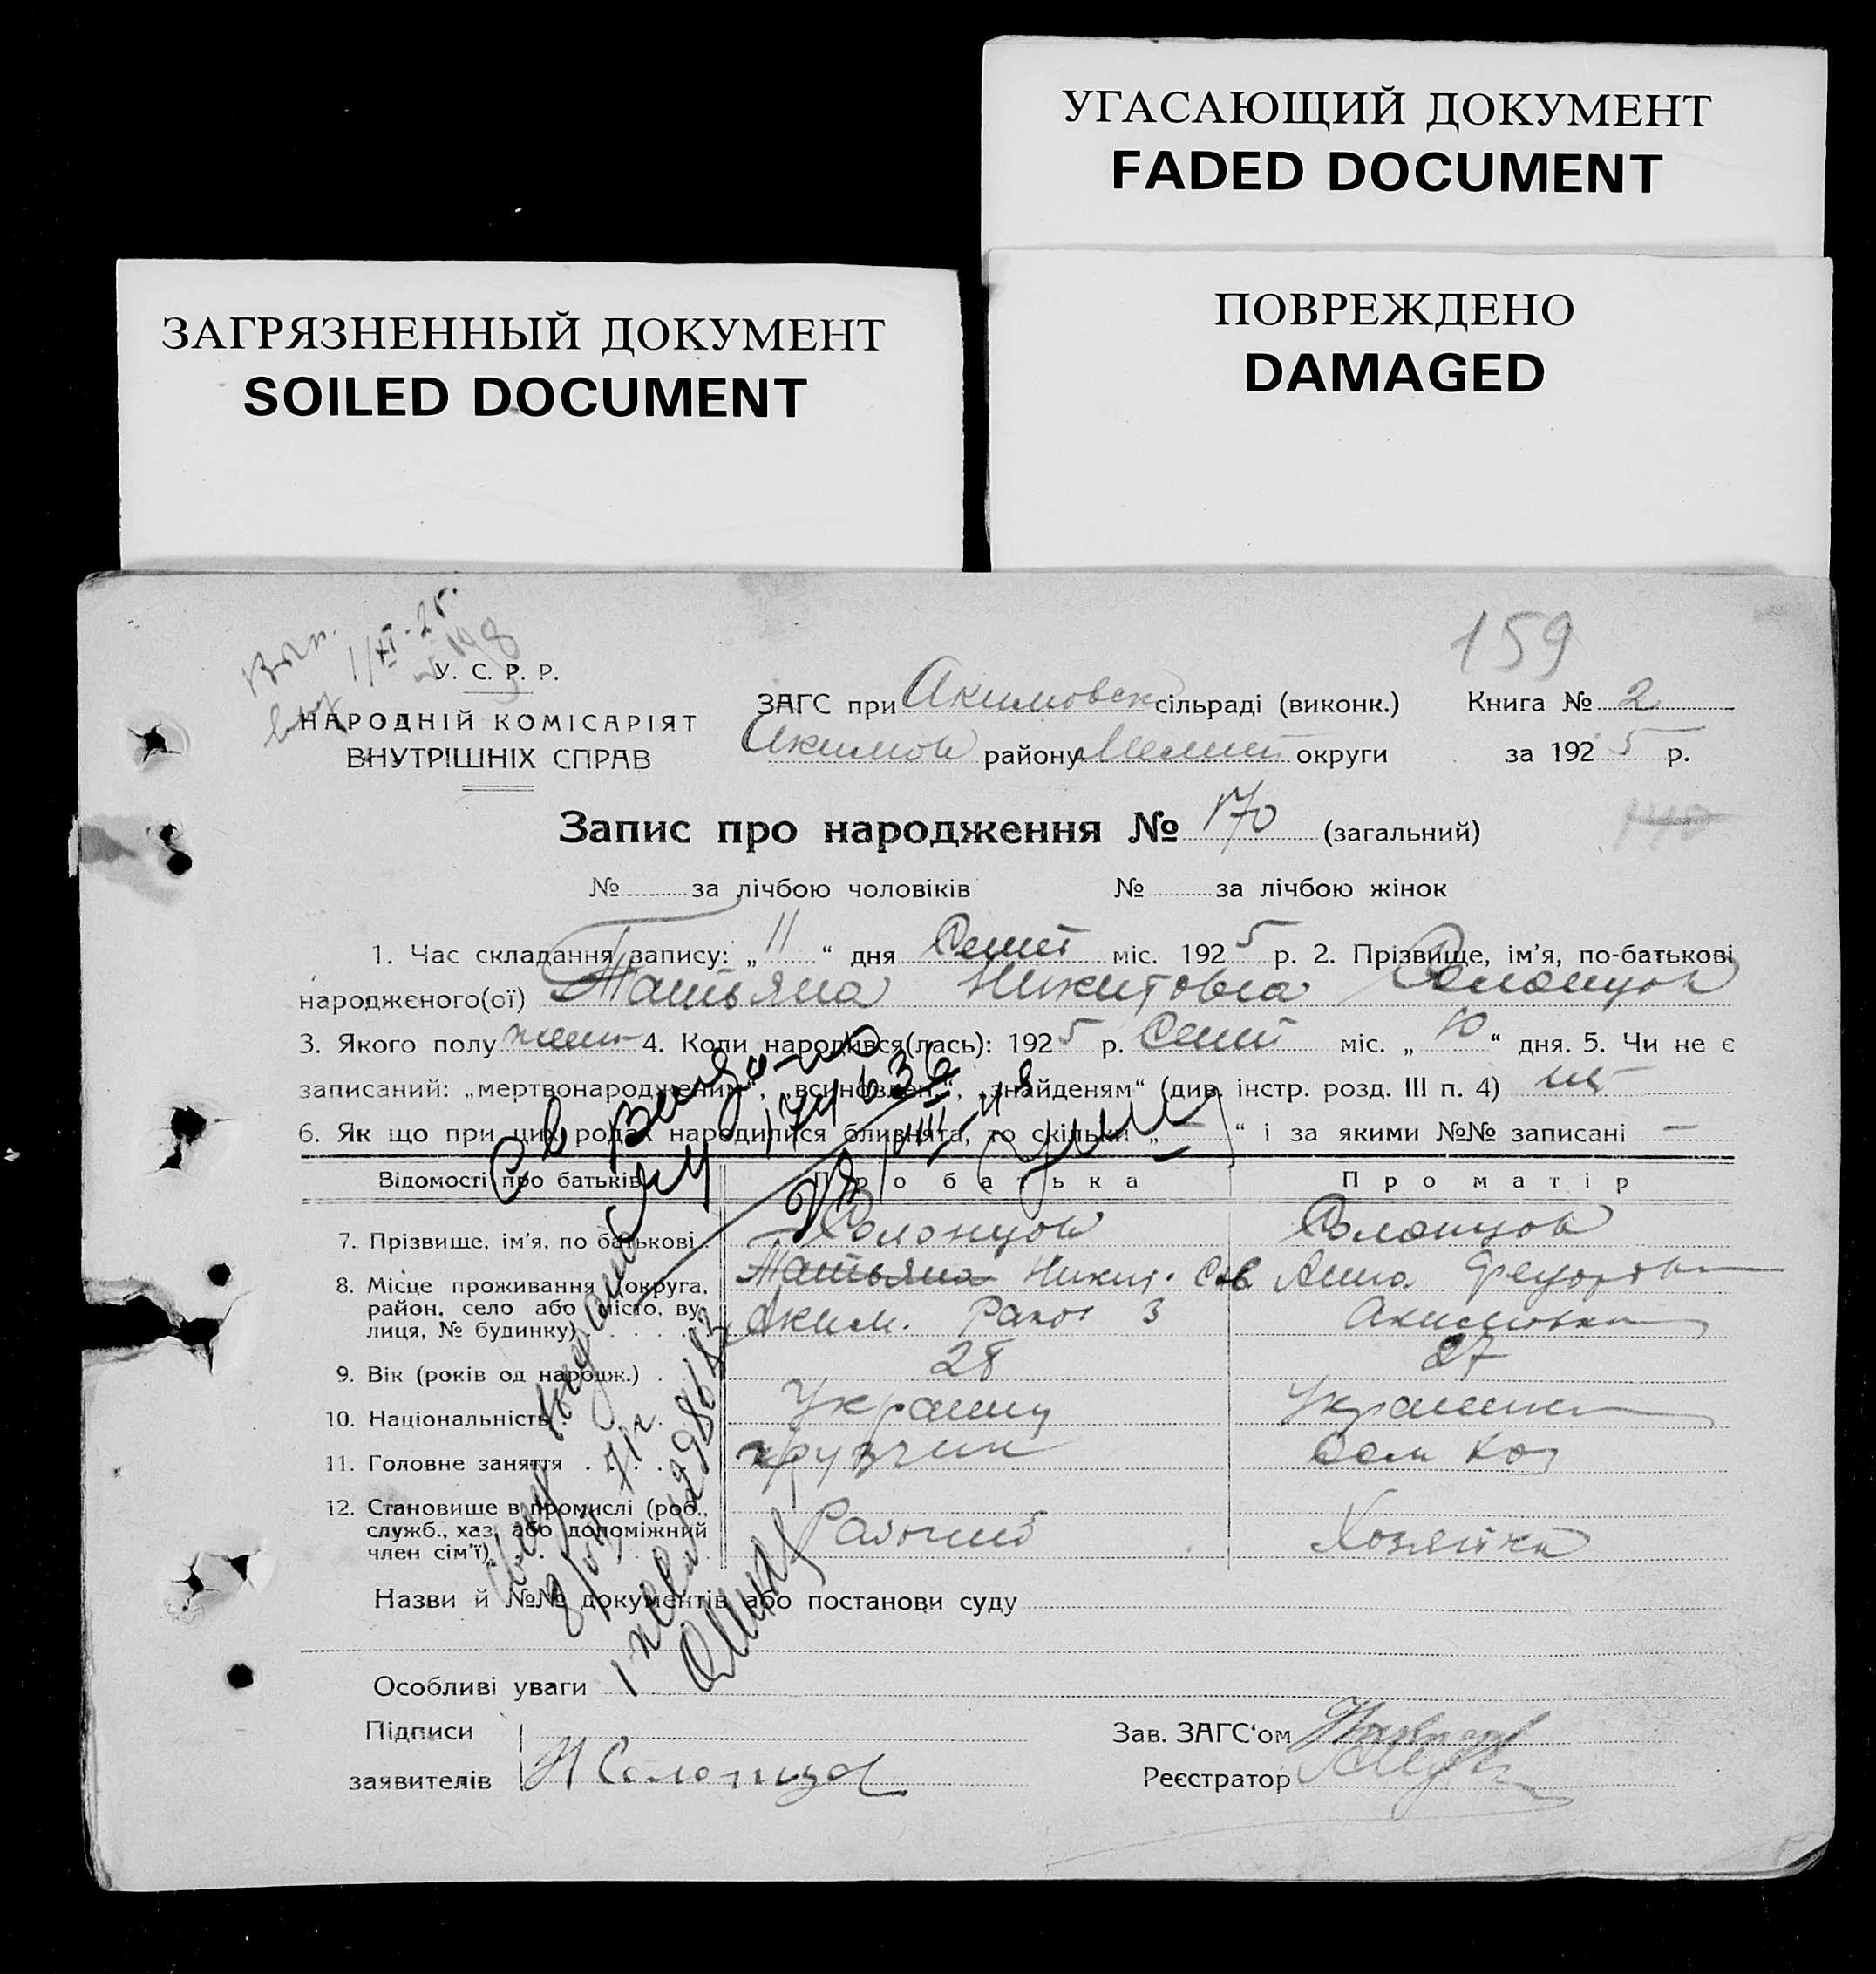 УГАСАЮЩИЙ ДОКУМЕНТ
FADED DOCUMENT
ЗАГРЯЗНЕННЫЙ ДОКУМЕНТ
SOILED DOCUMENT
ПОВРЕЖДЕНО
DAMAGED
159
1/XI-25.
У. С. Р. Р.
НАРОДНІЙ КОМІСАРІЯТ
ВНУТРІШНІХ СПРАВ
ЗАГС при Акимовск сільраді (виконк.) Книга № 2
Акимов району Мелит округи за 1925 р.
Запис про народження № 170 (загальний)
№ за лічбою чоловіків № за лічбою жінок
1. Час складання запису: „ 11 “ дня Сент міс. 1925 р. 2. Прізвище, ім'я, по-батькові
народженого(ої) Татьяна Никитовна Солонцов
3. Якого полу жен 4. Коли народився(лась): 1925 р. Сент міс. „ 10 “ дня. 5. Чи не є
записаний: „мертвонародженим“, „всиновлен.“, „знайденям“ (див. інстр. розд. III п. 4)
6. Як що при цих родах народилися близнята, то скільки „ — “ і за якими №№ записані —
Відомості про батьків Про батька Про матір
7. Прізвище, ім'я, по батькові Солонцов Солонцов
Татьяна Никит. Анна
8. Місце проживання (округа,
район, село або місто, ву-
лиця, № будинку) Аким. 3 Акимовка
9. Вік (років од народж.) 28 27
10. Національність Украинц Украинка
11. Головне заняття грузчик
12. Становище в промислі (роб.,
служб., хаз. або допоміжний
член сім'ї) Рабочий Хозяйка
Назви й №№ документів або постанови суду
Особливі уваги
Підписи
заявителів Н Солонцов
Зав. ЗАГС‘ом
Реєстратор